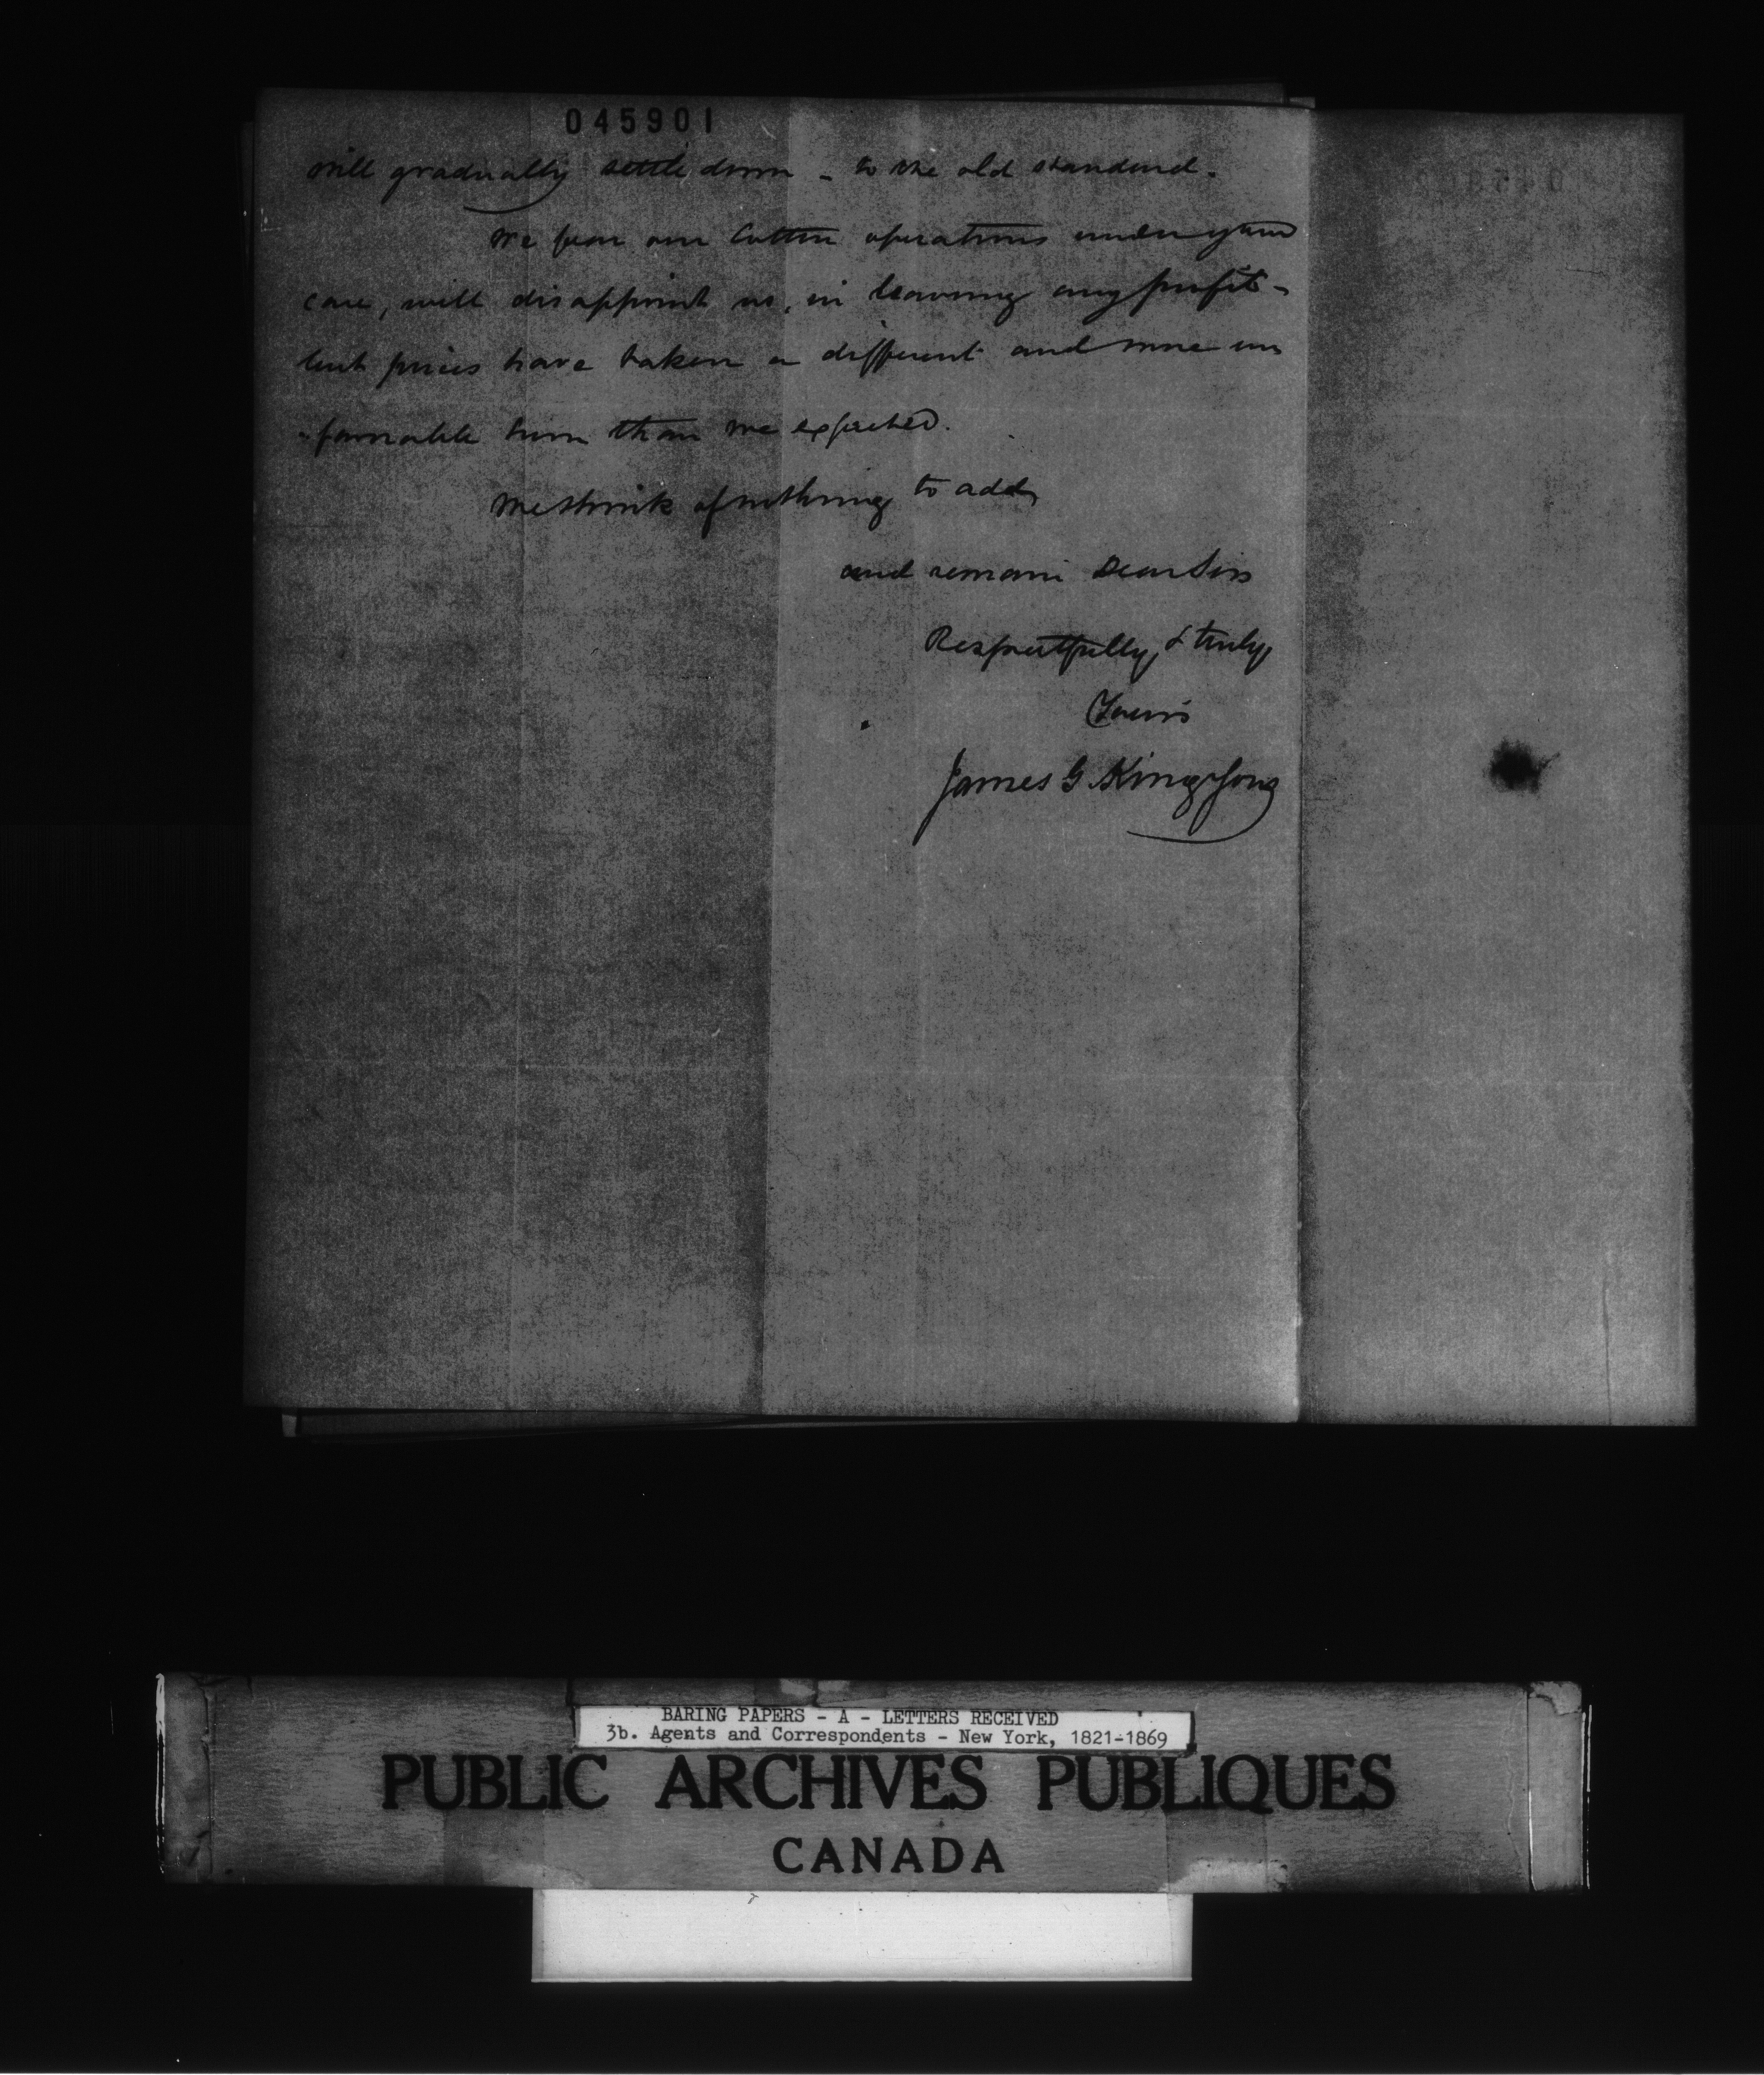 045901
will gradually settle down - to the old standard.
We fear our Cotton operations under your
care, will disappoint us, in leaving any profit -
but prices have taken a different and more un
"favorable turn than we expected.
We think of nothing to add,
and remain Dear Sirs
Respectfully, & truly,
Yours
James G. King & Sons
BARING PAPERS - A - LETTERS RECEIVED
3b. Agents and Correspondents - New York, 1821-1869
PUBLIC ARCHIVES PUBLIQUES
CANADA